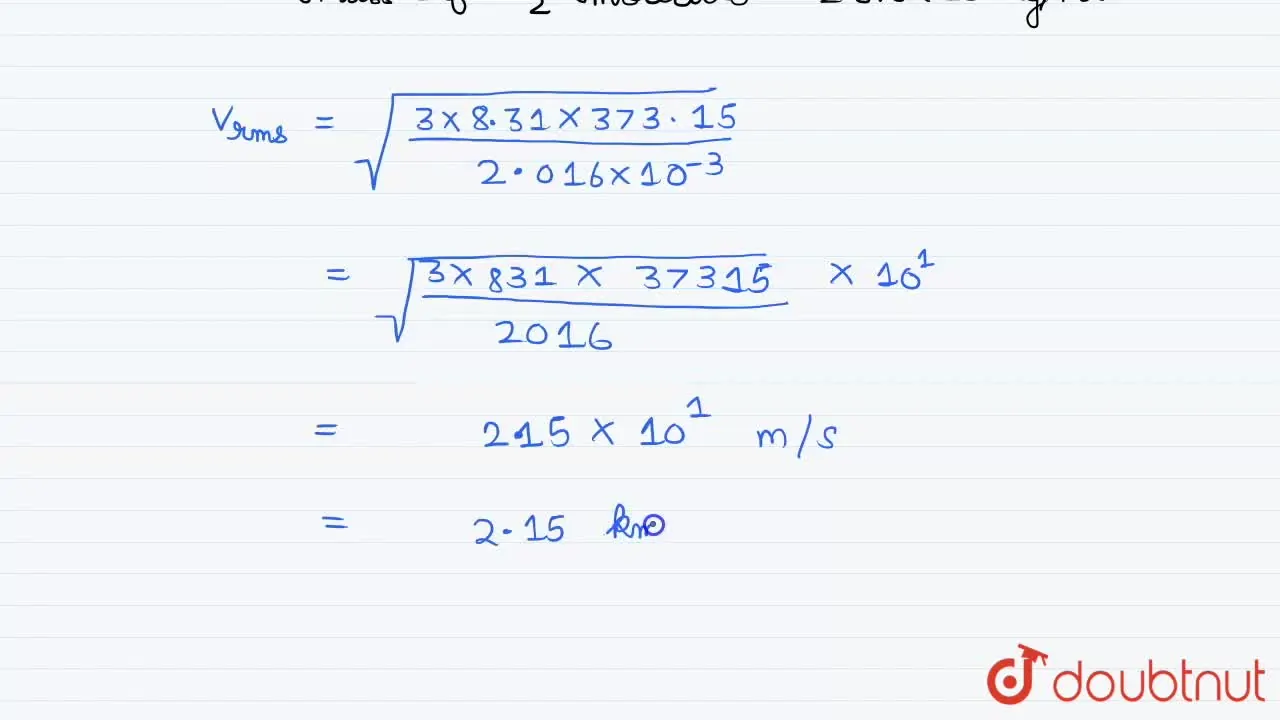 V rms = √ 3 × 8.31 × 373.15
2.016 × 10⁻³
= √ 3 × 831 × 37315 × 10¹
2016
= 2.15 × 10¹ m/s
= 2.15 km
doubtnut